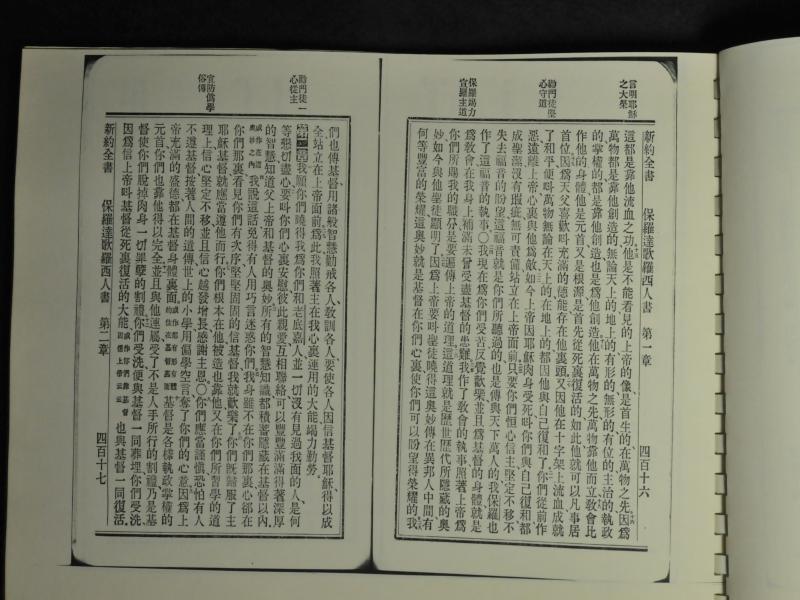 言明耶穌
之大榮
勸門徒堅
心守道
保羅竭力
宣羅主道
新約全書　保羅達歌羅西人書　第一章　四百十六
這都是靠他流血之功、他是不能看見的上帝的像、是首生的、在萬物之先、因爲
萬物都是靠他創造的、無論天上的、地上的、有形的、無形的、有位的、主治的、執政
的、掌權的、都是靠他創造、也是爲他創造、他在萬物之先、萬物靠他而立、敎會比
作他的身體、他是元首、又是根源、是首先從死裏復活的、如此他就可以凡事居
首位、因爲天父喜歡叫充滿的德能存在他裏頭、又因他在十字架上流血成就
了和平、便叫萬物無論在天上的、在地上的、都因他與自己復和了、你們從前作
惡、遠離上帝、心裏與他爲敵、如今上帝因耶穌肉身受死、叫你們與自己復和、都
成聖潔、沒有瑕疵、無可責備、站立在上帝面前、只要你們恒心信主、堅定不移、不
失去福音的盼望、這福音就是你們所聽過的、也是傳與天下萬人的、我保羅也
作了這福音的執事○我現在爲你們受苦、反覺歡樂、並且爲基督的身體、就是
爲敎會、在我身上補滿未曾受盡基督的患難、我作了敎會的執事、照著上帝爲
你們所賜我的職分、是要徧傳上帝的道理、這道理就是歷世歷代所隱藏的奧
妙、如今與他聖徒顯明了、因爲上帝要叫聖徒曉得這奧妙、傳在異邦人中間有
何等豐富的榮耀、這奧妙就是基督在你們心裏、使你們可以盼望得榮耀的、我
勸門徒一
心從主
宜防僞學
俗傳
們也傳基督、用諸般智慧、勸戒各人、敎訓各人、要使各人因信基督耶穌得以成
全、站立在上帝面前、爲此我照著主在我心裏運用的大能、竭力勤勞、
第二章 我願你們曉得我爲你們和老底嘉人、並一切沒有見過我面的人、是何
等懇切盡心、要叫你們心裏安慰、彼此親愛、互相聯絡、可以豐豐滿滿得著深厚
的智慧、知道父上帝和基督的奧妙、所有的智慧知識、都積蓄隱藏在基督以內、
或作在這奧妙之內 我說這話、免得有人用巧言迷惑你們、我身雖不在你們那裏、心卻在
你們那裏、看見你們有次序、堅堅固固的信基督、我就歡樂了、你們旣歸服了主
耶穌基督、就應當遵他而行、你們根本在他、被造也靠他、又在你們所習學的道
理上、信心堅定不移、並且信心越發增長、感謝主恩○你們應當謹愼、恐怕有人
不遵基督、按著人間的道傳、世上的小學、用僞學空言奪了你們的心意、因爲上
帝充滿的盛德、都在基督身體裏面、 基督是各樣執政掌權的
元首、你們也靠他得以完全、並且與他連屬、受了不是人手所行的割禮、乃是基
督使你們脫掉肉身一切罪孽的割禮、你們受洗、便與基督一同葬埋、你們受洗、
因爲信上帝叫基督從死裏復活的大能、 也與基督一同復活、
新約全書　保羅達歌羅西人書　第二章　四百十七